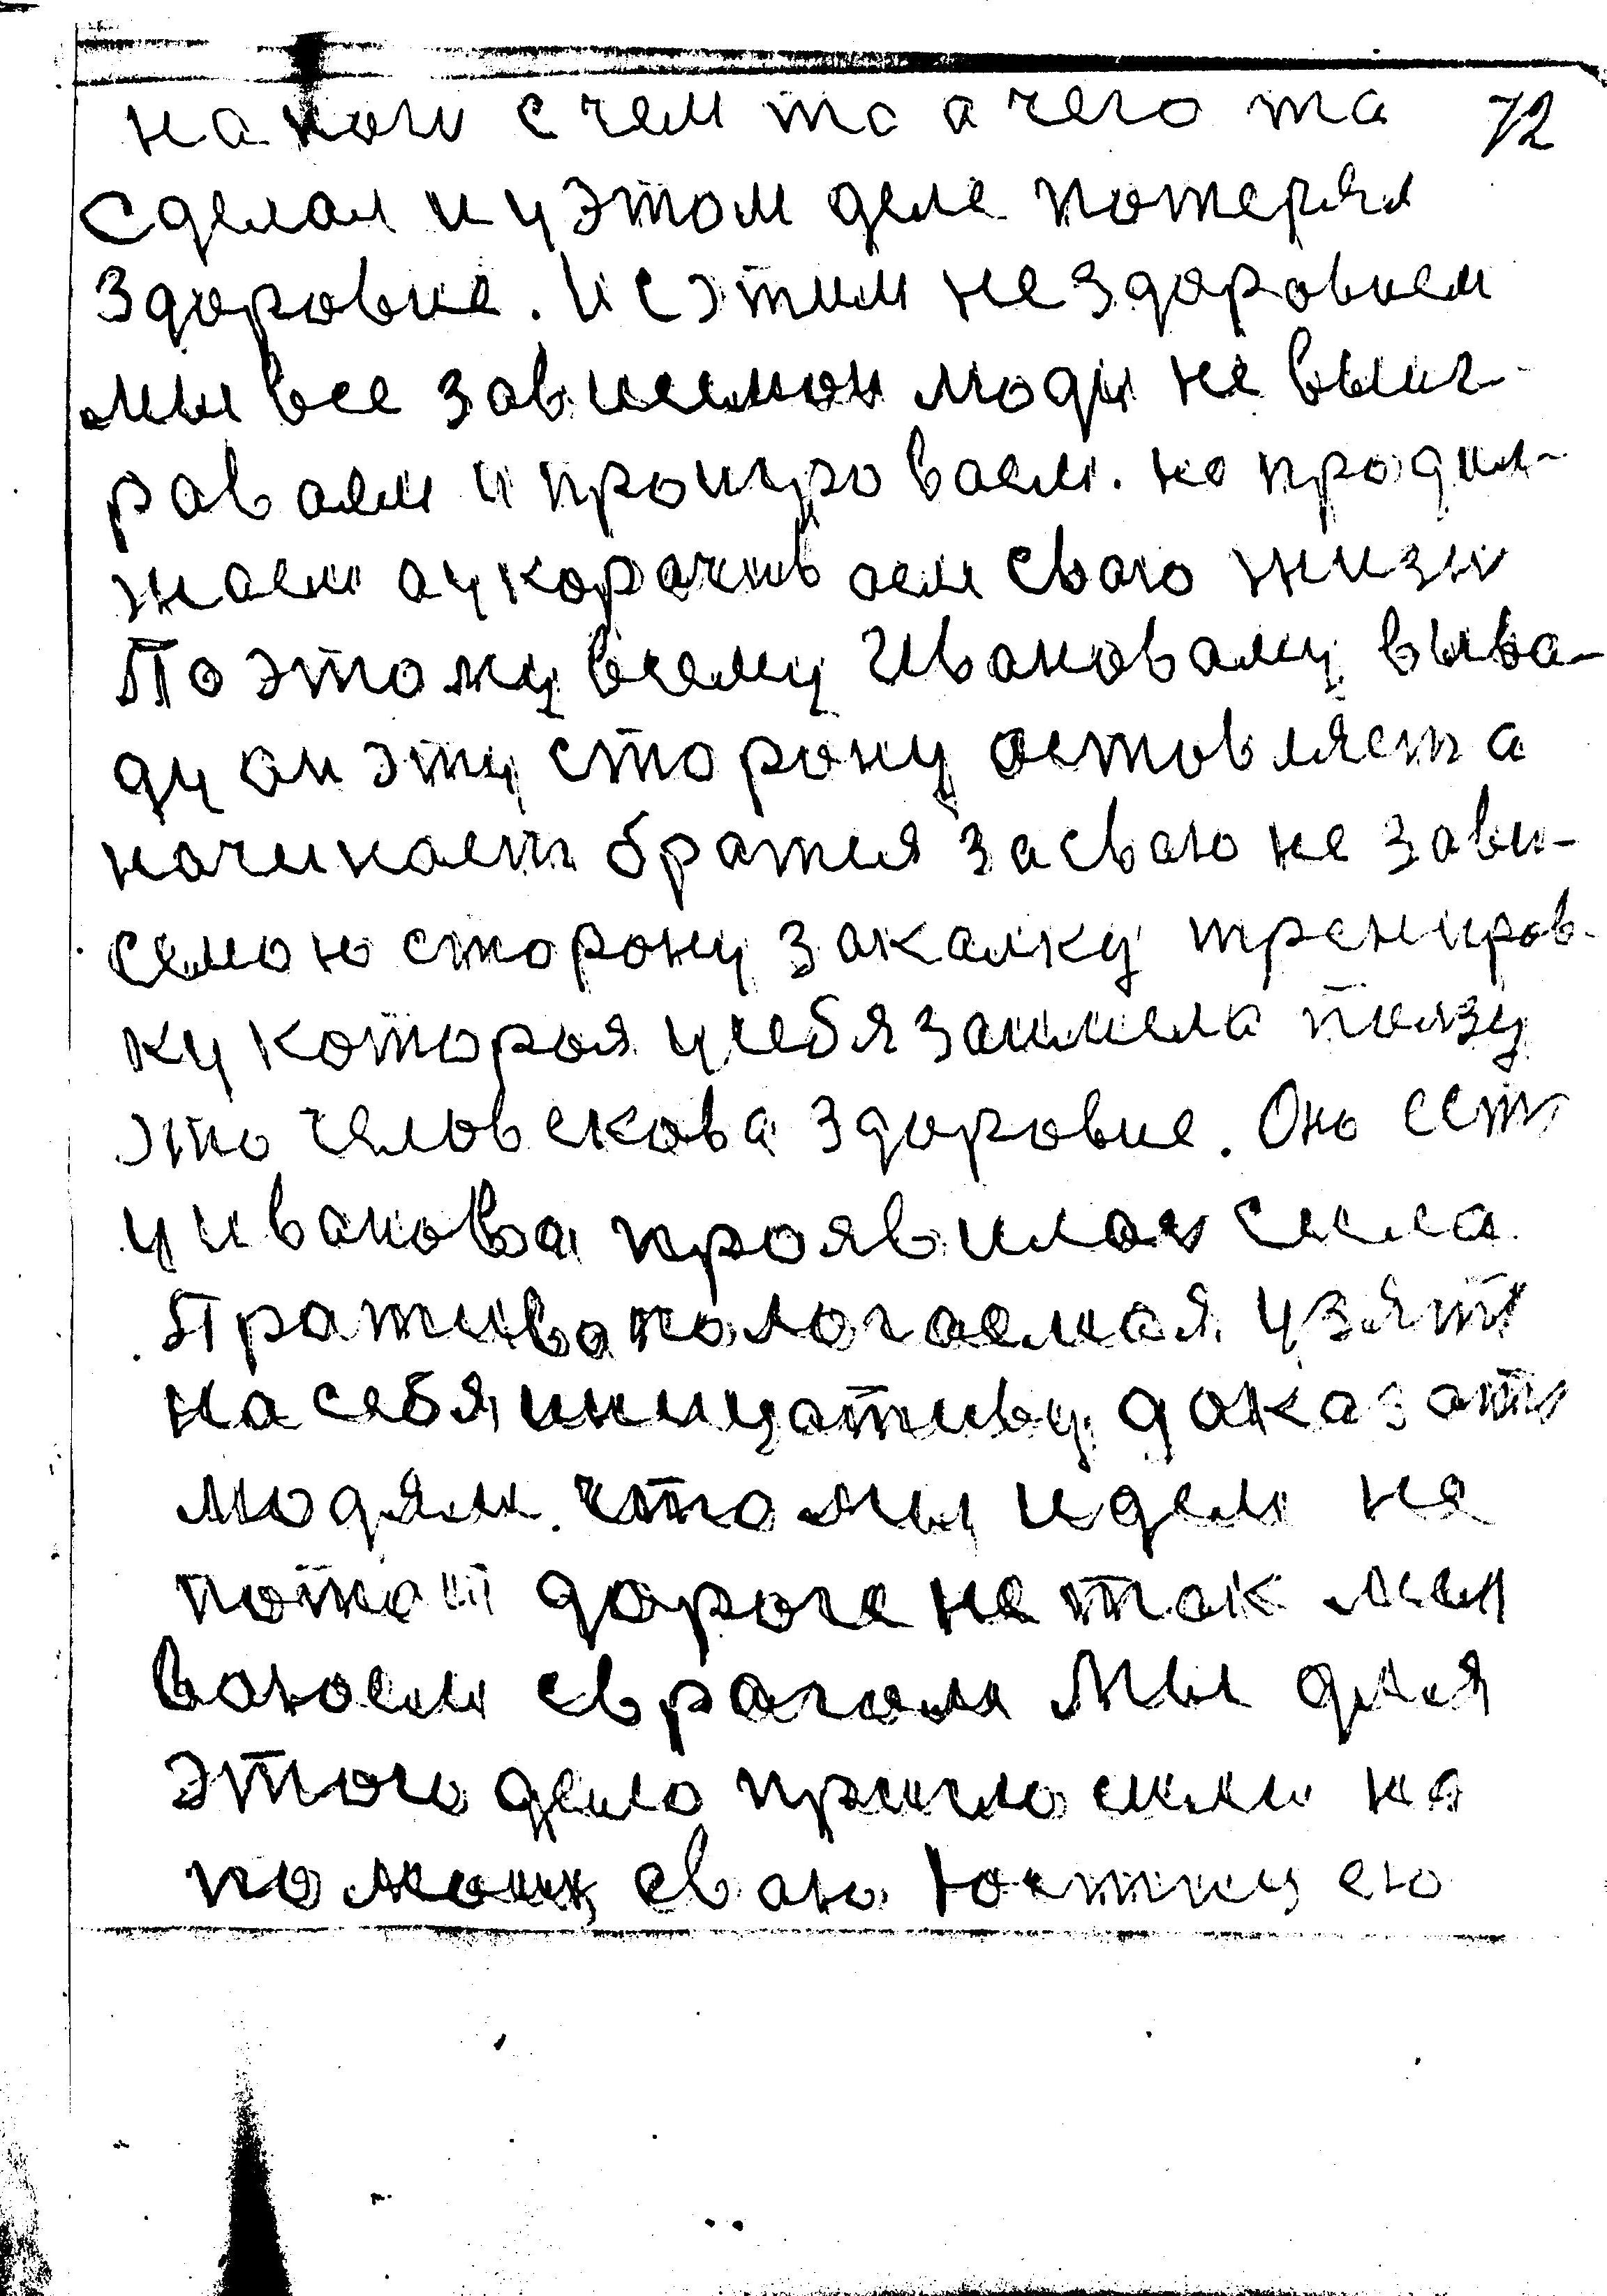 накои с чем то а чего та 72
сделал и у этом деле потерял
здоровие. И с этим нездоровием
мы все зависемои люди не выиг-
раваем и проигроваем. не продлы-
жаем а укорачиваем сваю жизн
Поэтому всему Ивановаму выва-
ду он эту сторону оставляет а
начинает братся за сваю не зави-
семою сторону закалку трениров-
ку которая у себя заимела ползу
это человекова здоровие. Оно ест
у иванова проявилас сила
Пративополагаемая узят
на себя инициативу даказат
людям. что мы идем не
по той дароге не так мы
воюем с врагом Мы для
этого дело пригласили на
помощ сваю Юстицею